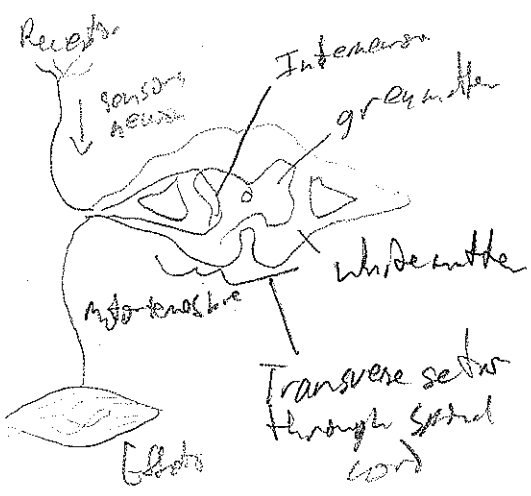 Receptor
sensory
neuron
Interneuron
grey matter
white matter
Transverse
through spinal
cord
Effector